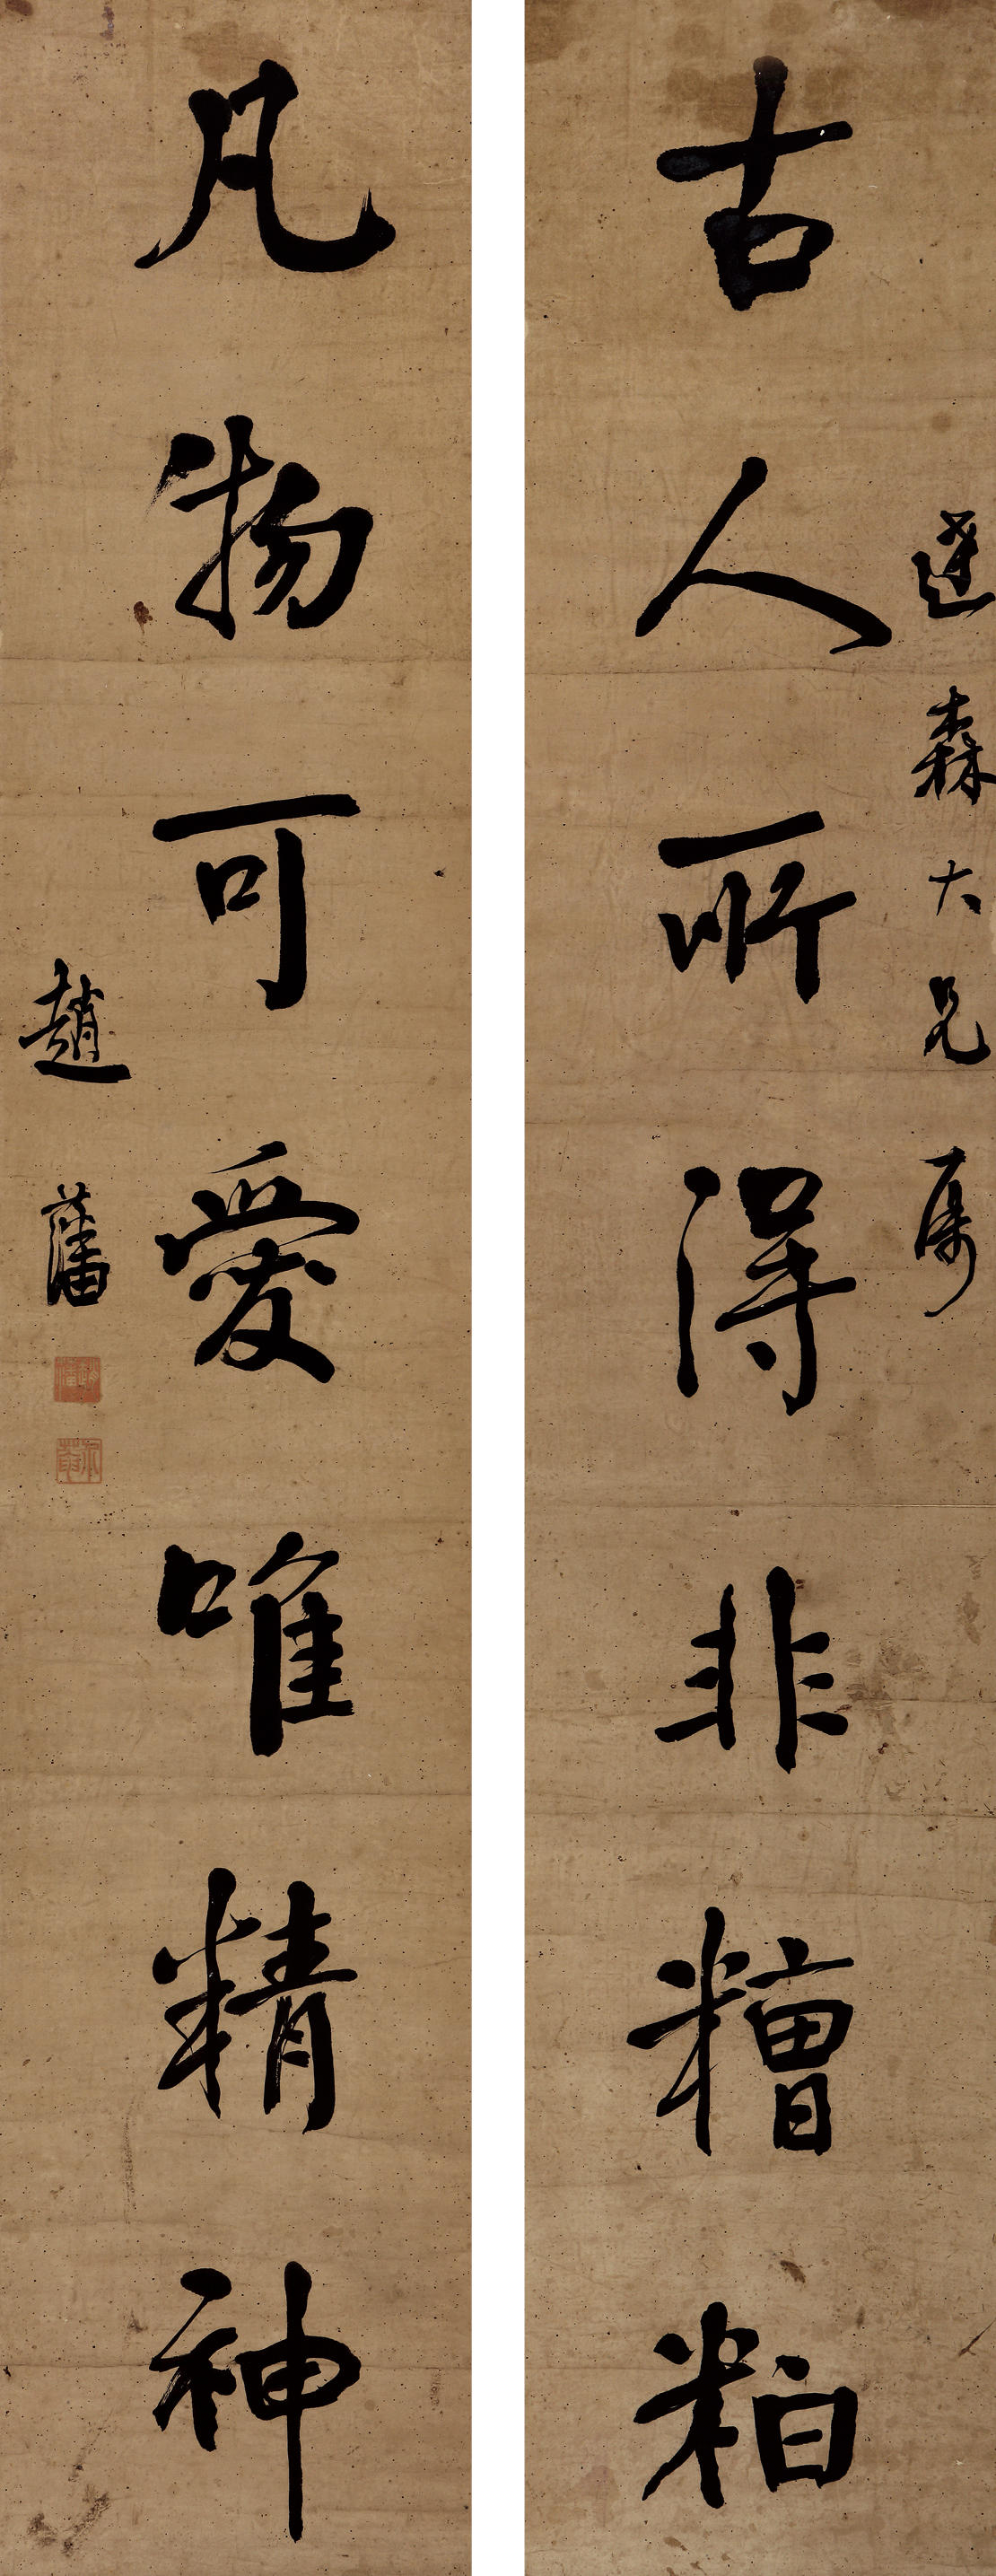 古人所得非糟粕
選森大兄属
凡物可愛唯精神
趙藩